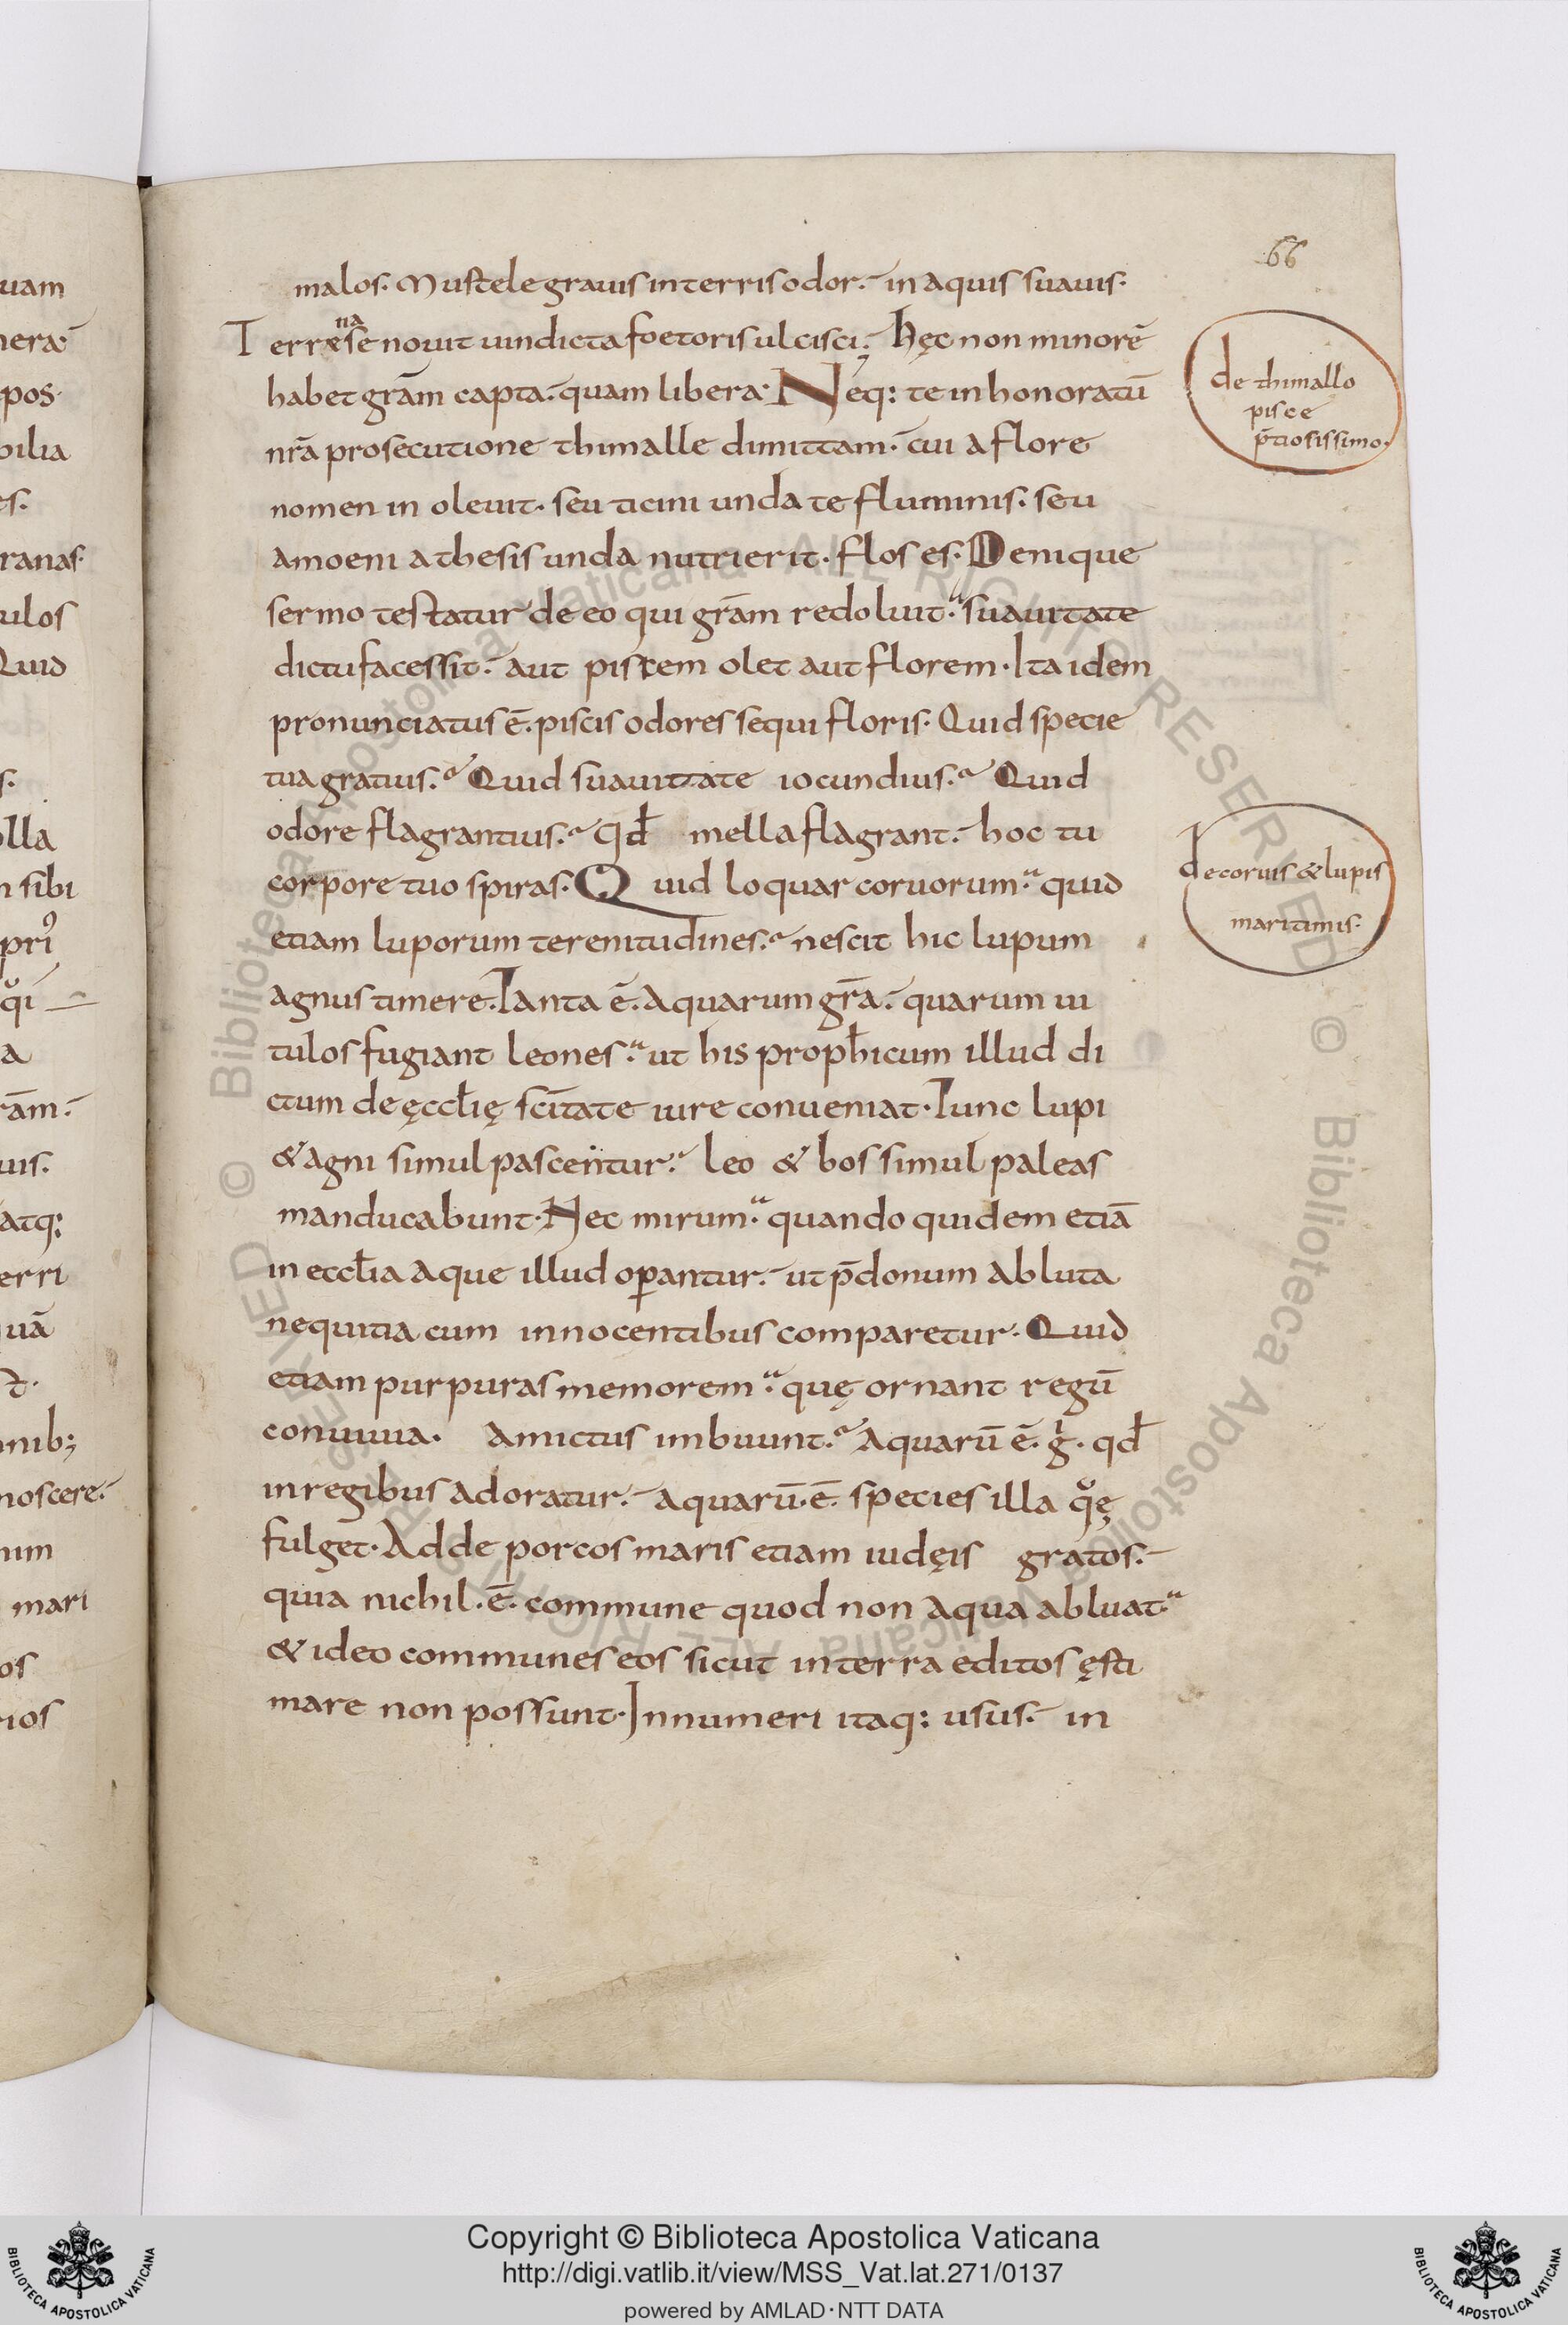 66
malos. Mustele grauis in terris odor. in aquis suauis.
Terrena se nouit uindicta foetoris ulcisci; hęc non minorē
habet grām capta. quam libera. Neq: te inhonoratū
nr̄a prosecutione thimalle dimittam. cui a flore
nomen inoleuit. seu ticini unda te fluminis. seu
amoeni athesis unda nutrierit. flos es. Denique
sermo testatur de eo qui grām redoluit. suauitate
dictu facessit. aut piscem olet aut florem. Ita idem
pronunciatus ē. piscis odores sequi floris. Quid specie
tua gratius. Quid suauitate iocundius. Quid
odore flagrantius. qd̄ mella flagrant. hoc tu
corpore tuo spiras. Quid loquar coruorum. quid
etiam luporum terenitudines. nescit hic lupum
agnus timere. Tanta ē. aquarum gr̄a. quarum ui
tulos fugiant leones. ut his proph̄icum illud di
ctum de ęccl̄ię sc̄itate iure conueniat. Tunc lupi
& agni simul pascentur. leo & bos simul paleas
manducabunt. Nec mirum. quando quidem etiā
in eccl̄ia aque illud op̄antur. ut p̄donum abluta
nequitia cum innocentibus comparetur. Quid
etiam purpuras memorem. quę ornant regū
conuiuia. amictus imbuunt. Aquarū ē. g̍. qd̄
in regibus adoratur. aquarū. ē. species illa qͦę
fulget. Adde porcos maris etiam iudęis gratos.
quia nichil. ē. commune quod non aqua abluat.
& ideo communes eos sicut in terra editos ęsti
mare non possunt. Innumeri itaq: usus. in
de thimallo
pisce
p̄tiosissimo.
de coruis & lupis
maritimis.
Copyright © Biblioteca Apostolica Vaticana
http://digi.vatlib.it/view/MSS_Vat.lat.271/0137
powered by AMLAD·NTT DATA
BIBLIOTECA APOSTOLICA VATICANA
BIBLIOTECA APOSTOLICA VATICANA